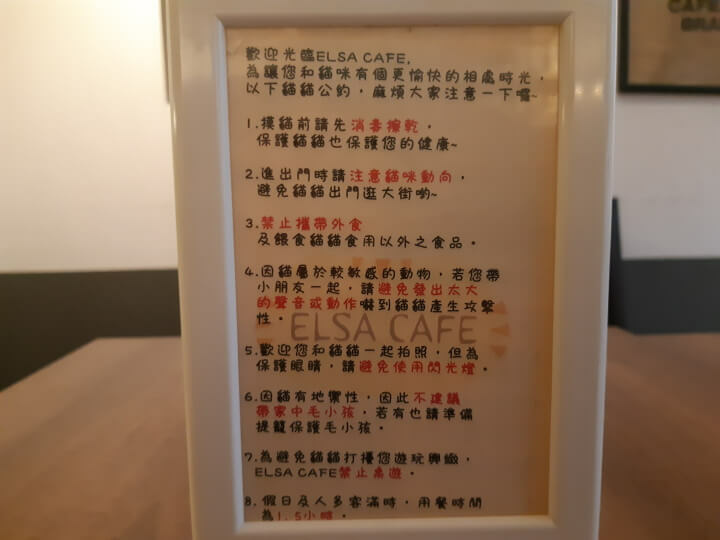 歡迎光臨ELSA CAFE,
為讓您和貓咪有個更愉快的相處時光，
以下貓貓公約，麻煩大家注意一下喔~
1.摸貓前請先消毒擦乾，
保護貓貓也保護您的健康~
2.進出門時請注意貓咪動向，
避免貓貓出門逛大街喲~
3.禁止攜帶外食
及餵食貓貓食用以外之食品。
4.因貓屬於較敏感的動物，若您帶
小朋友一起，請避免發出太大
的聲音或動作嚇到貓貓產生攻擊
性。
ELSA CAFE
5.歡迎您和貓貓一起拍照，但為
保護眼睛，請避免使用閃光燈。
6.因貓有地禦性，因此不建議
帶家中毛小孩，若有也請準備
提籠保護毛小孩。
7.為避免貓貓打擾您遊玩興緻，
ELSA CAFE禁止桌遊。
8.假日及人多客滿時，用餐時間
為1.5小時。
CAFE
BRA